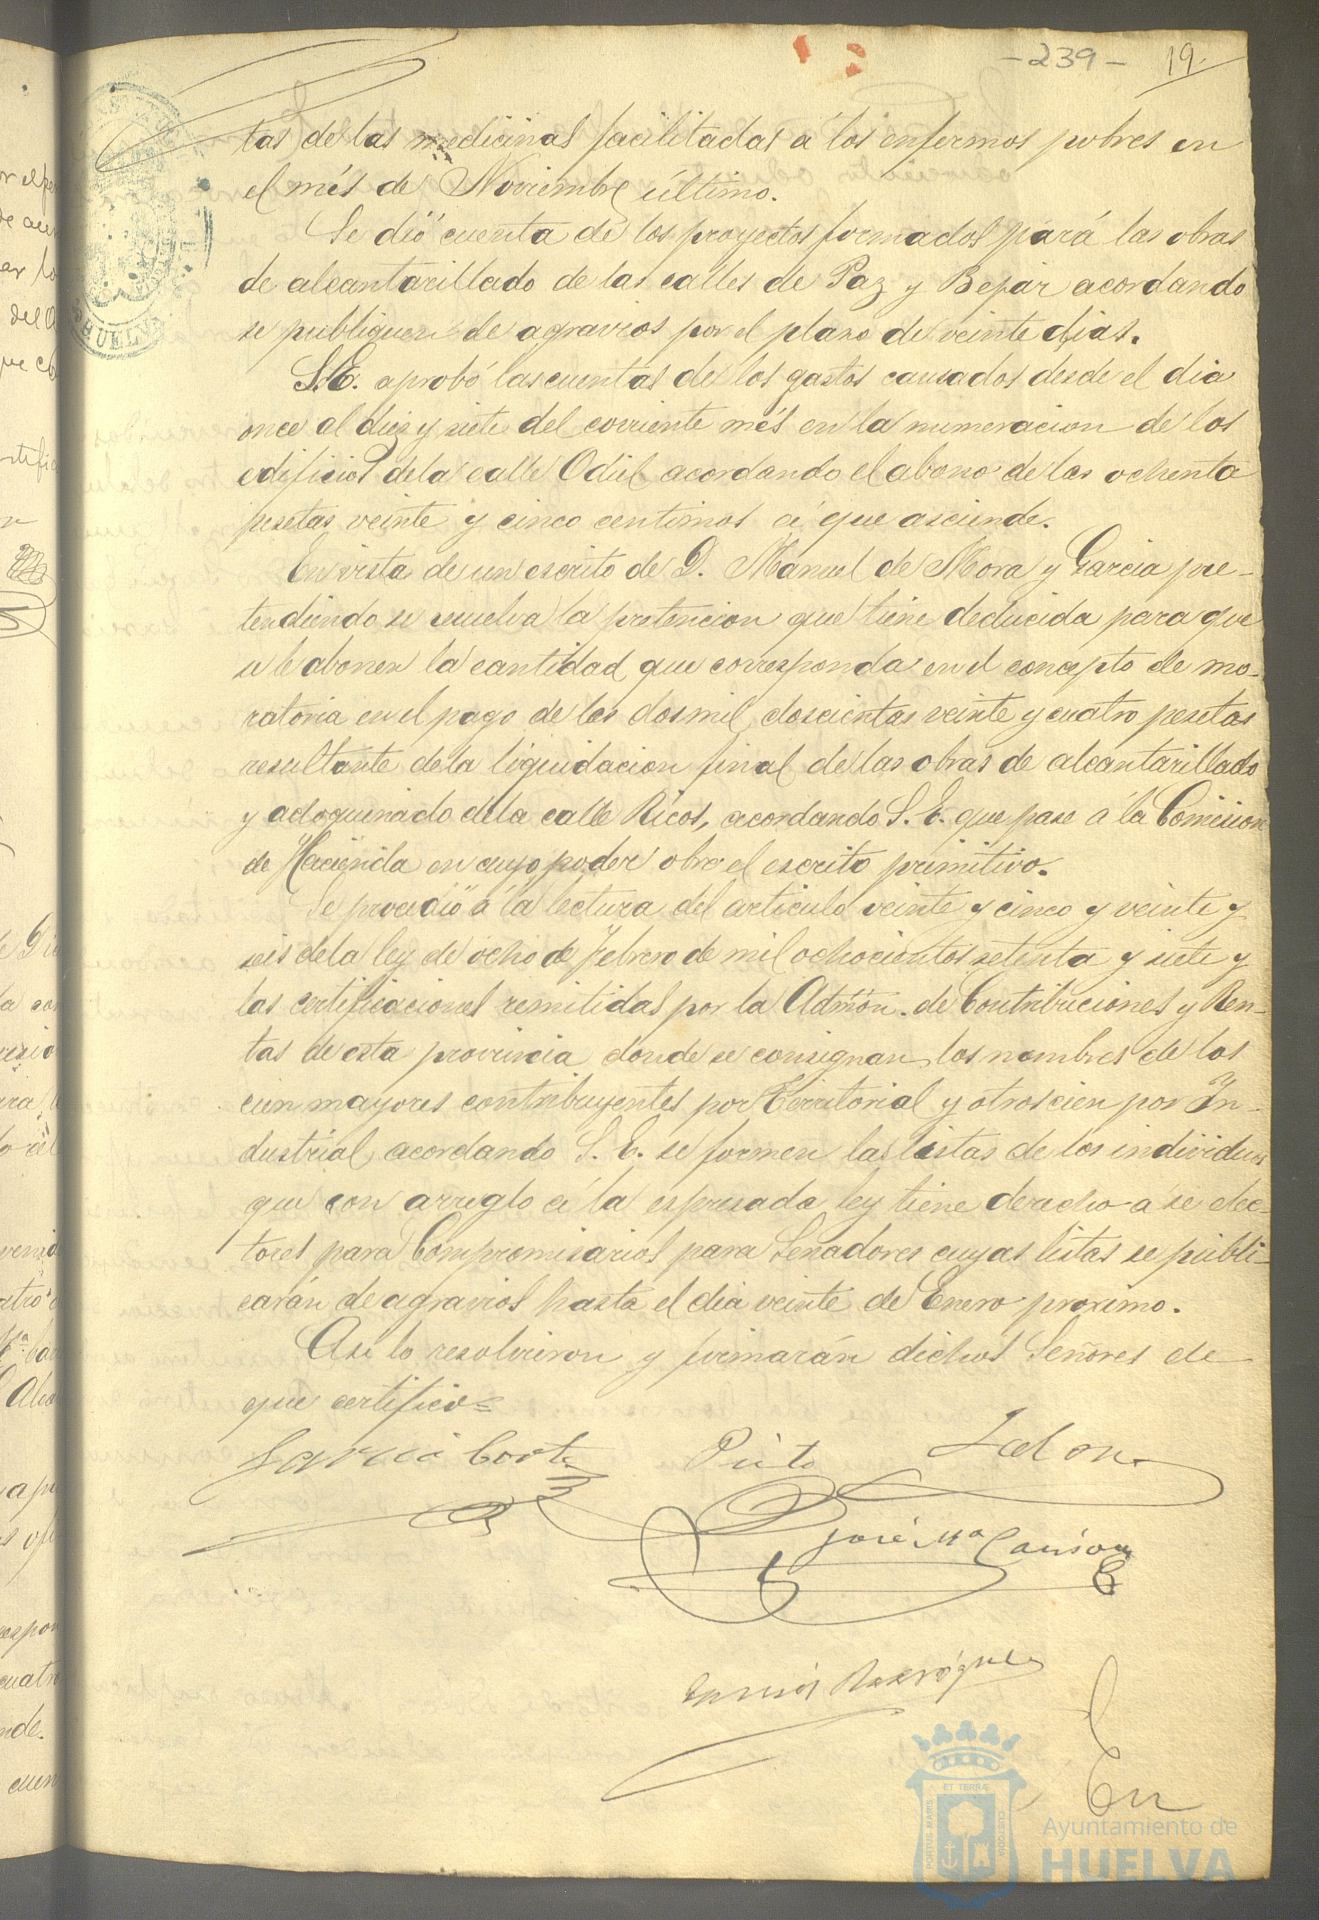 -239- 19
tas de las medicinas facilitadas á los enfermos pobres en
el més de Noviembre último.
Se dió cuenta de los proyectos formados pará las obras
de alcantarillado de las calles de Paz y Bejar acordando
se publiquen de agravios por el plazo de veinte dias.
S.E. aprobó las cuentas de los gastos causados desde el dia
once al diez y siete del corriente més en la numeracion de los
edificios de la calle Odiel acordando el abono de las ochenta
pesetas veinte y cinco centimos á que asciende.
En vista de un escrito de D. Manuel de Mora y Garcia pre-
tendiendo se resuelva la pretencion que tiene deducida para que
se le abonen la cantidad que corresponda en el concepto de mo-
ratoria en el pago de las dos mil doscientas veinte y cuatro pesetas
resultante de la liquidacion final de las obras de alcantarillado
y adoquinado de la calle Ricos, acordando S. E. que pase á la Comision
de Hacienda en cuyo poder obra el escrito primitivo.
Se procedió á la lectura del articulo veinte y cinco y veinte y
seis de la ley de ocho de Febrero de mil ochocientos setenta y siete y
las certificaciones remitidas por la Admón. de Contribuciones y Ren-
tas de esta provincia donde se consignan los nombres de los
cien mayores contribuyentes por Territorial y otros cien por In-
dustrial, acordando S. E. se formen las listas de los individuos
que con arreglo á la espresada ley tiene derecho á se elec-
tores para Compromisarios para Senadores cuyas listas se publi-
carán de agravios hasta el dia veinte de Enero proximo.
Asi lo resolvieron y firmarán dichos Señores de
que certifico=
Garcia Cortes Pinto Jalon
José Mª
Rodriguez
En
PORTUS MARIS ET TERRÆ CUSTODIA
Ayuntamiento de
HUELVA